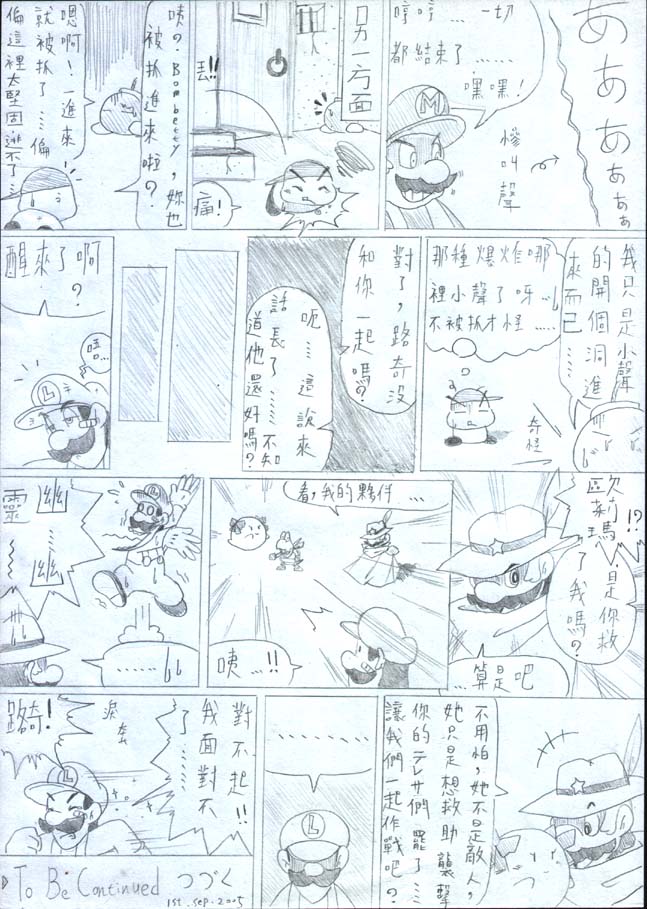 ああああぁぁぁ
慘叫聲
哼哼...一切
都結束了......
嘿嘿!
M
另一方面
丟!!
痛!
咦?Bombetty,妳也
被抓進來啦?
嗯啊!一進來
就被抓了....偏
偏這裡太堅固逃不了...
我只是小聲
的開個洞進
來而已....
那種爆炸哪
裡小聲了呀...
不被抓才怪.....
奇怪
對了,路奇沒
和你一起嗎?
呃....這說來
話長了......不知
道他還好嗎?
醒來了啊
?
唔...
L
歐莉瑪!?
是你救
了我嗎?
...算是吧
看,我的夥伴...
咦...!!
幽....幽
靈....
......
不用怕,她不是敵人,
她只是想救助襲擊
你的テレサ們罷了...
讓我們一起作戰吧?
........
L
對不起!!
我面對不
了......
淚奔
L
路奇!
To Be Continued つづく
1st.sep.2005